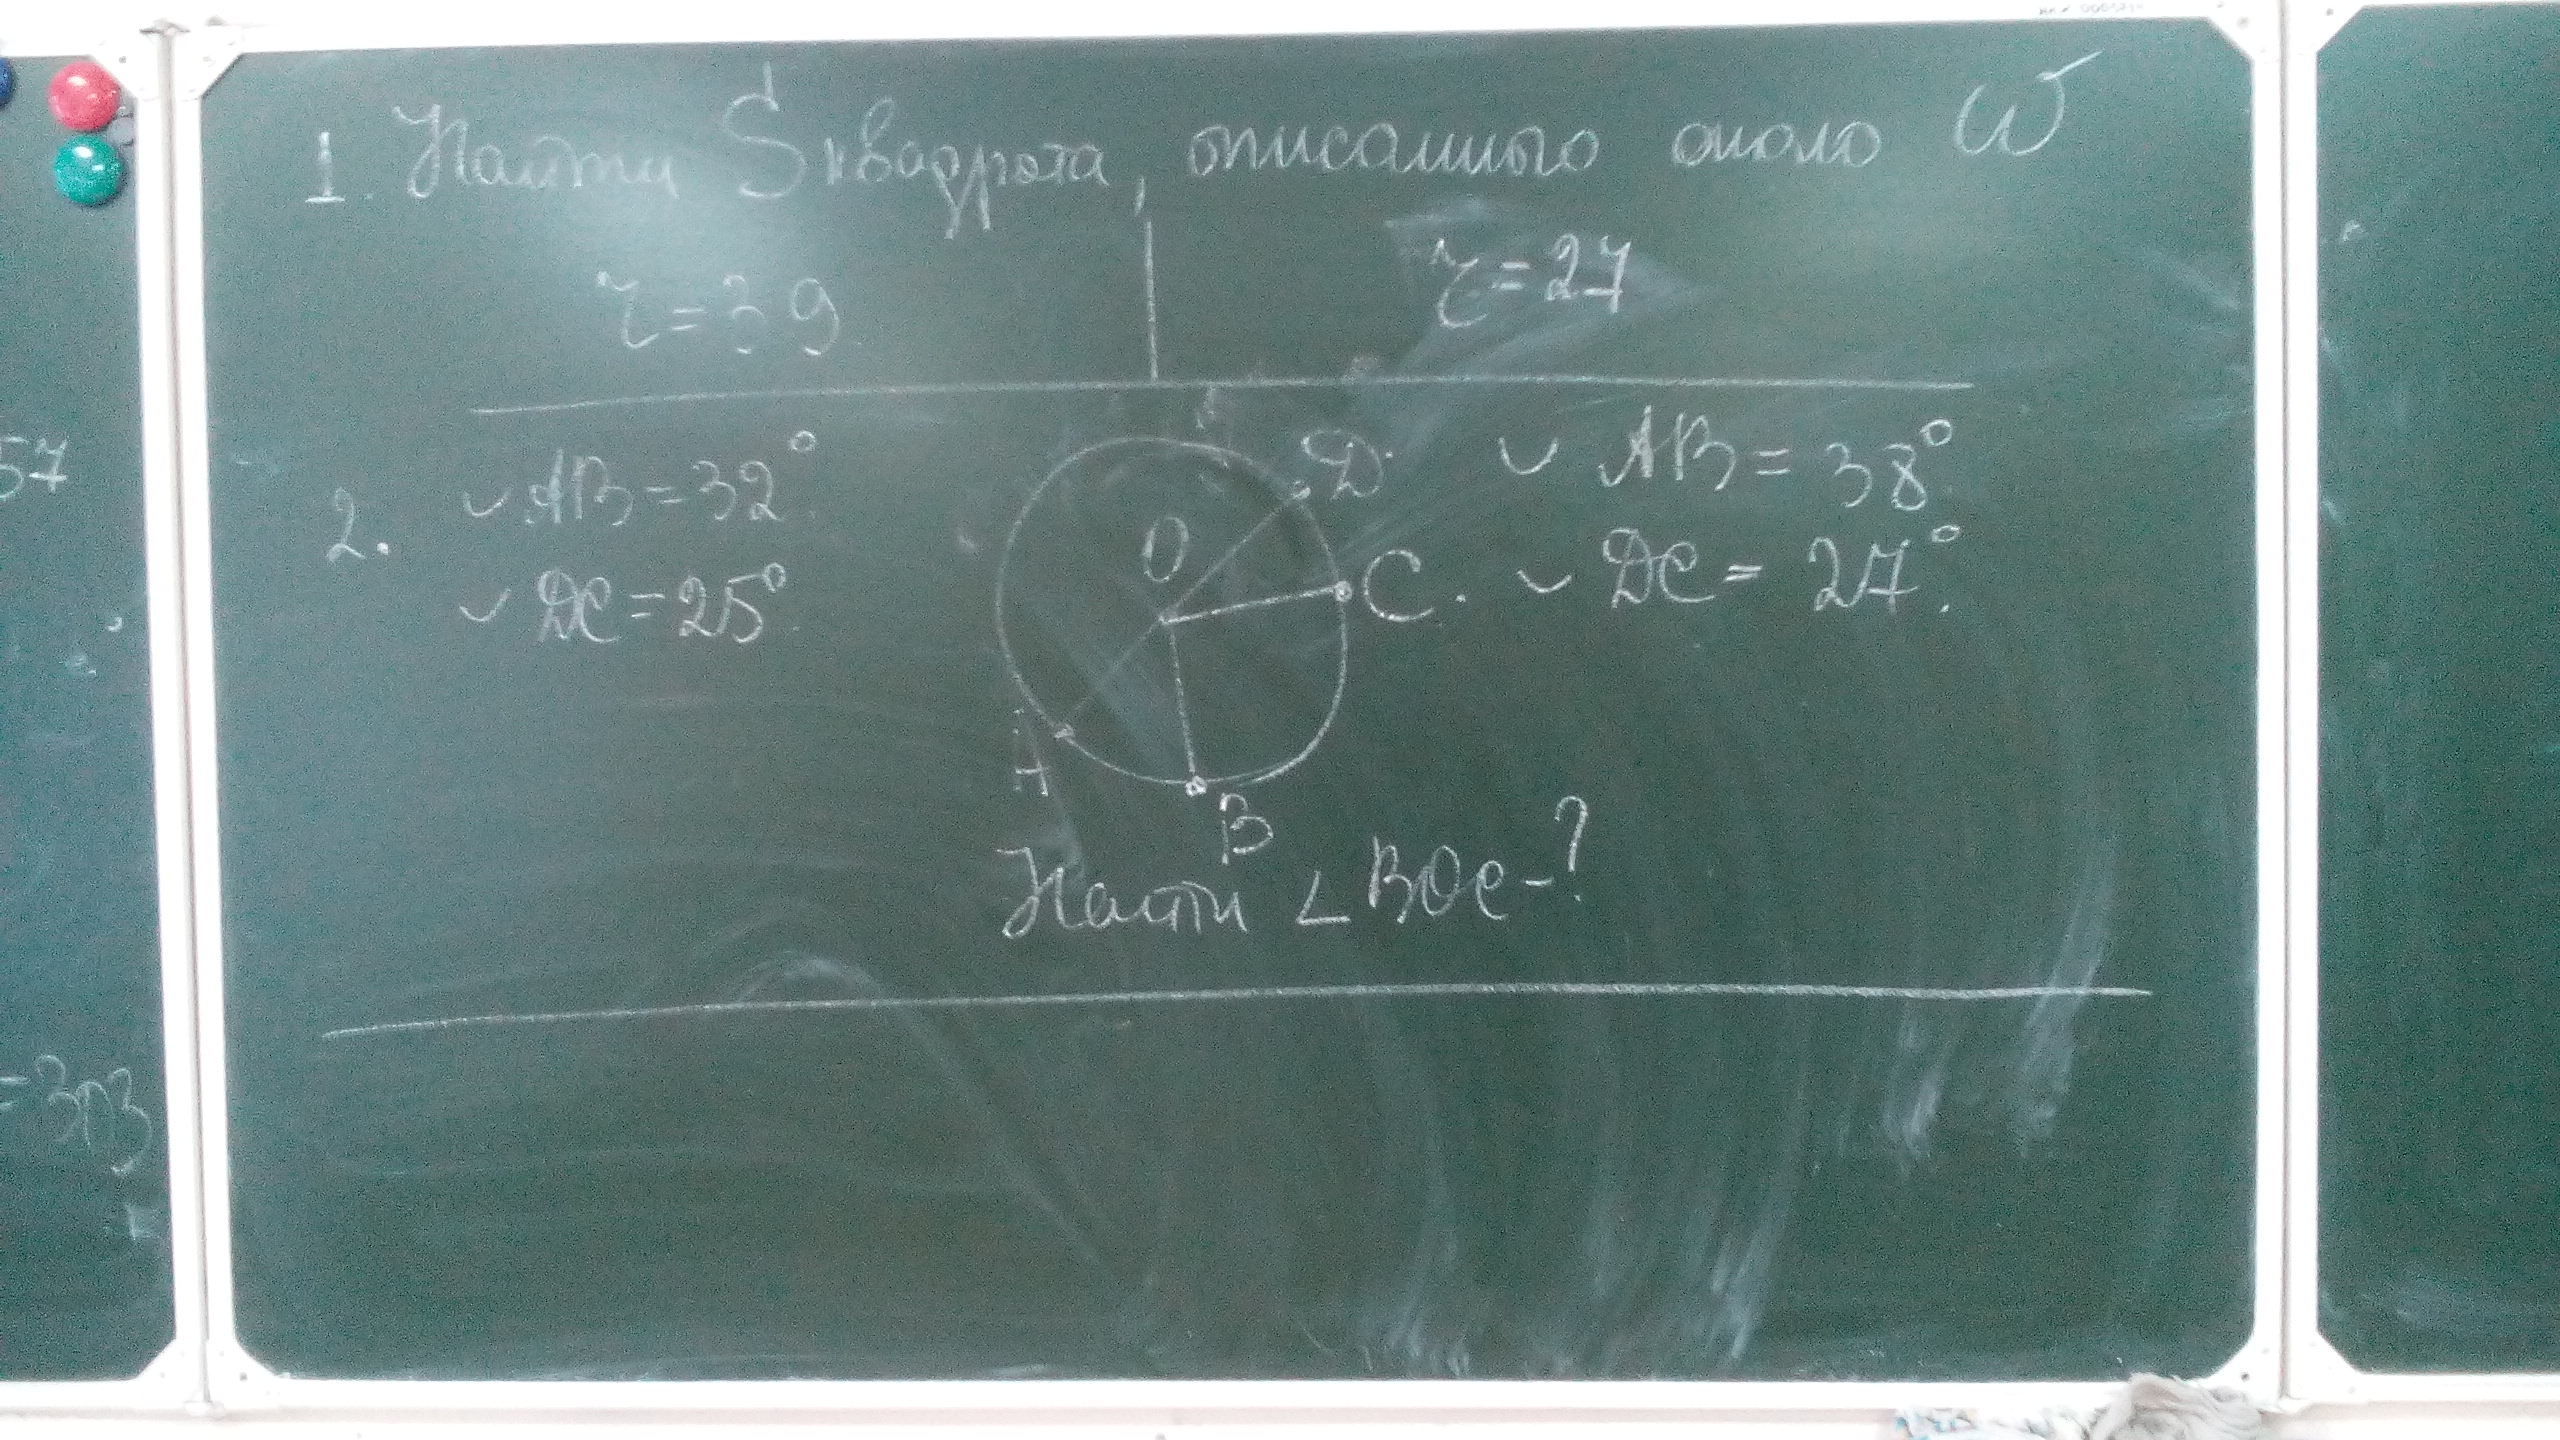 1. Найти Sквадрата, описанного около ω
r = 39
r = 27
2. ◡ AB = 32°
◡ DC = 25°
◡ AB = 38°
◡ DC = 27°.
D
O
C
A
B
Найти ∠BOC - ?
57